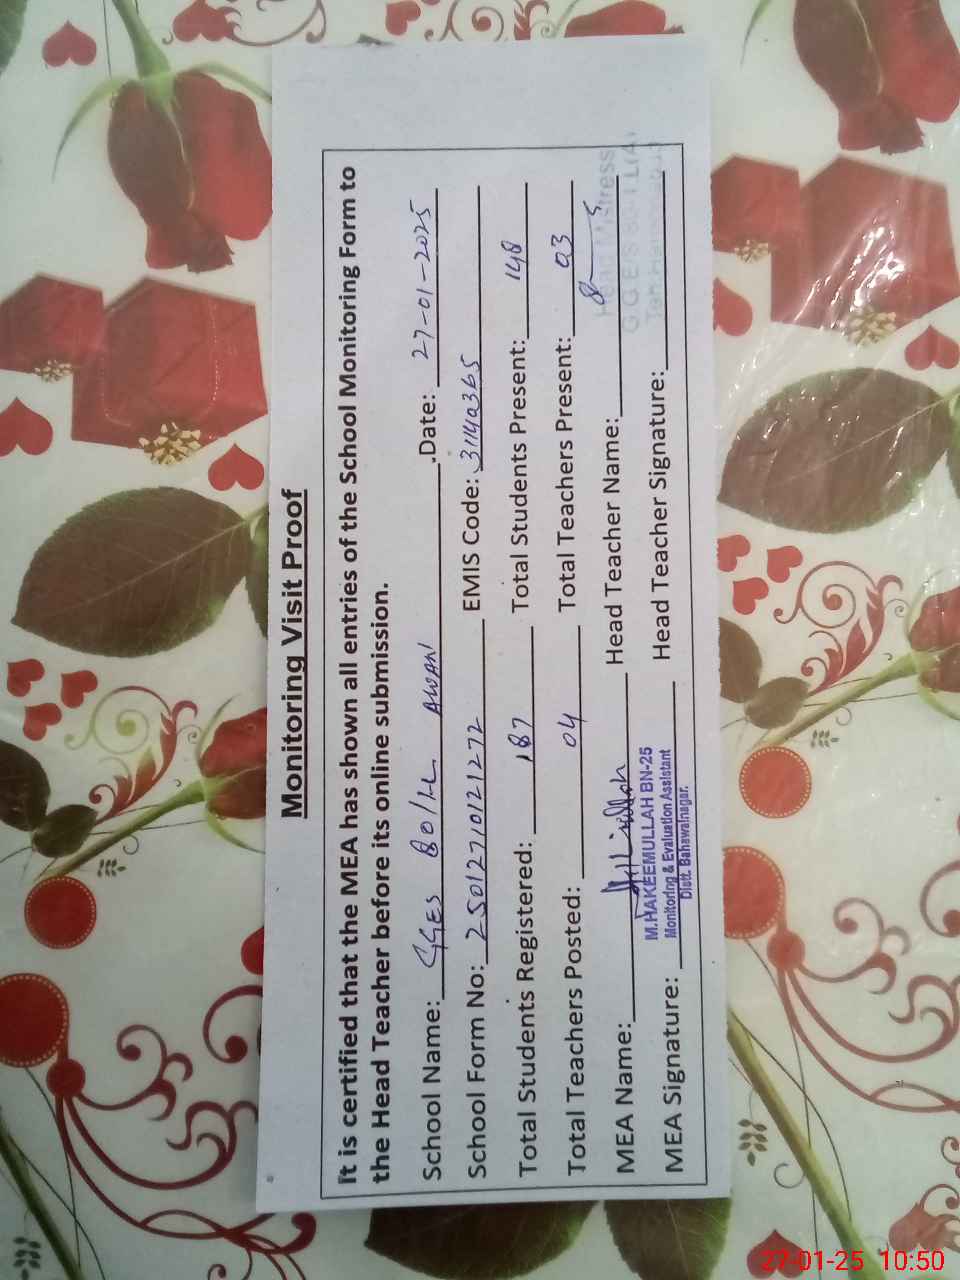 Monitoring Visit Proof
It is certified that the MEA has shown all entries of the School Monitoring Form to
the Head Teacher before its online submission.
School Name: GGES 80/4L AWAN Date: 27-01-2025
School Form No: 25012710121272 EMIS Code: 31140365
Total Students Registered: 187 Total Students Present: 148
Total Teachers Posted: 04 Total Teachers Present: 03
MEA Name: Head Teacher Name:
M.HAKEEMULLAH BN-25
Monitoring & Evaluation Assistant
Distt. Bahawalnagar.
MEA Signature: Head Teacher Signature:
Head Mistress
G.G.E/S
27-01-25 10:50